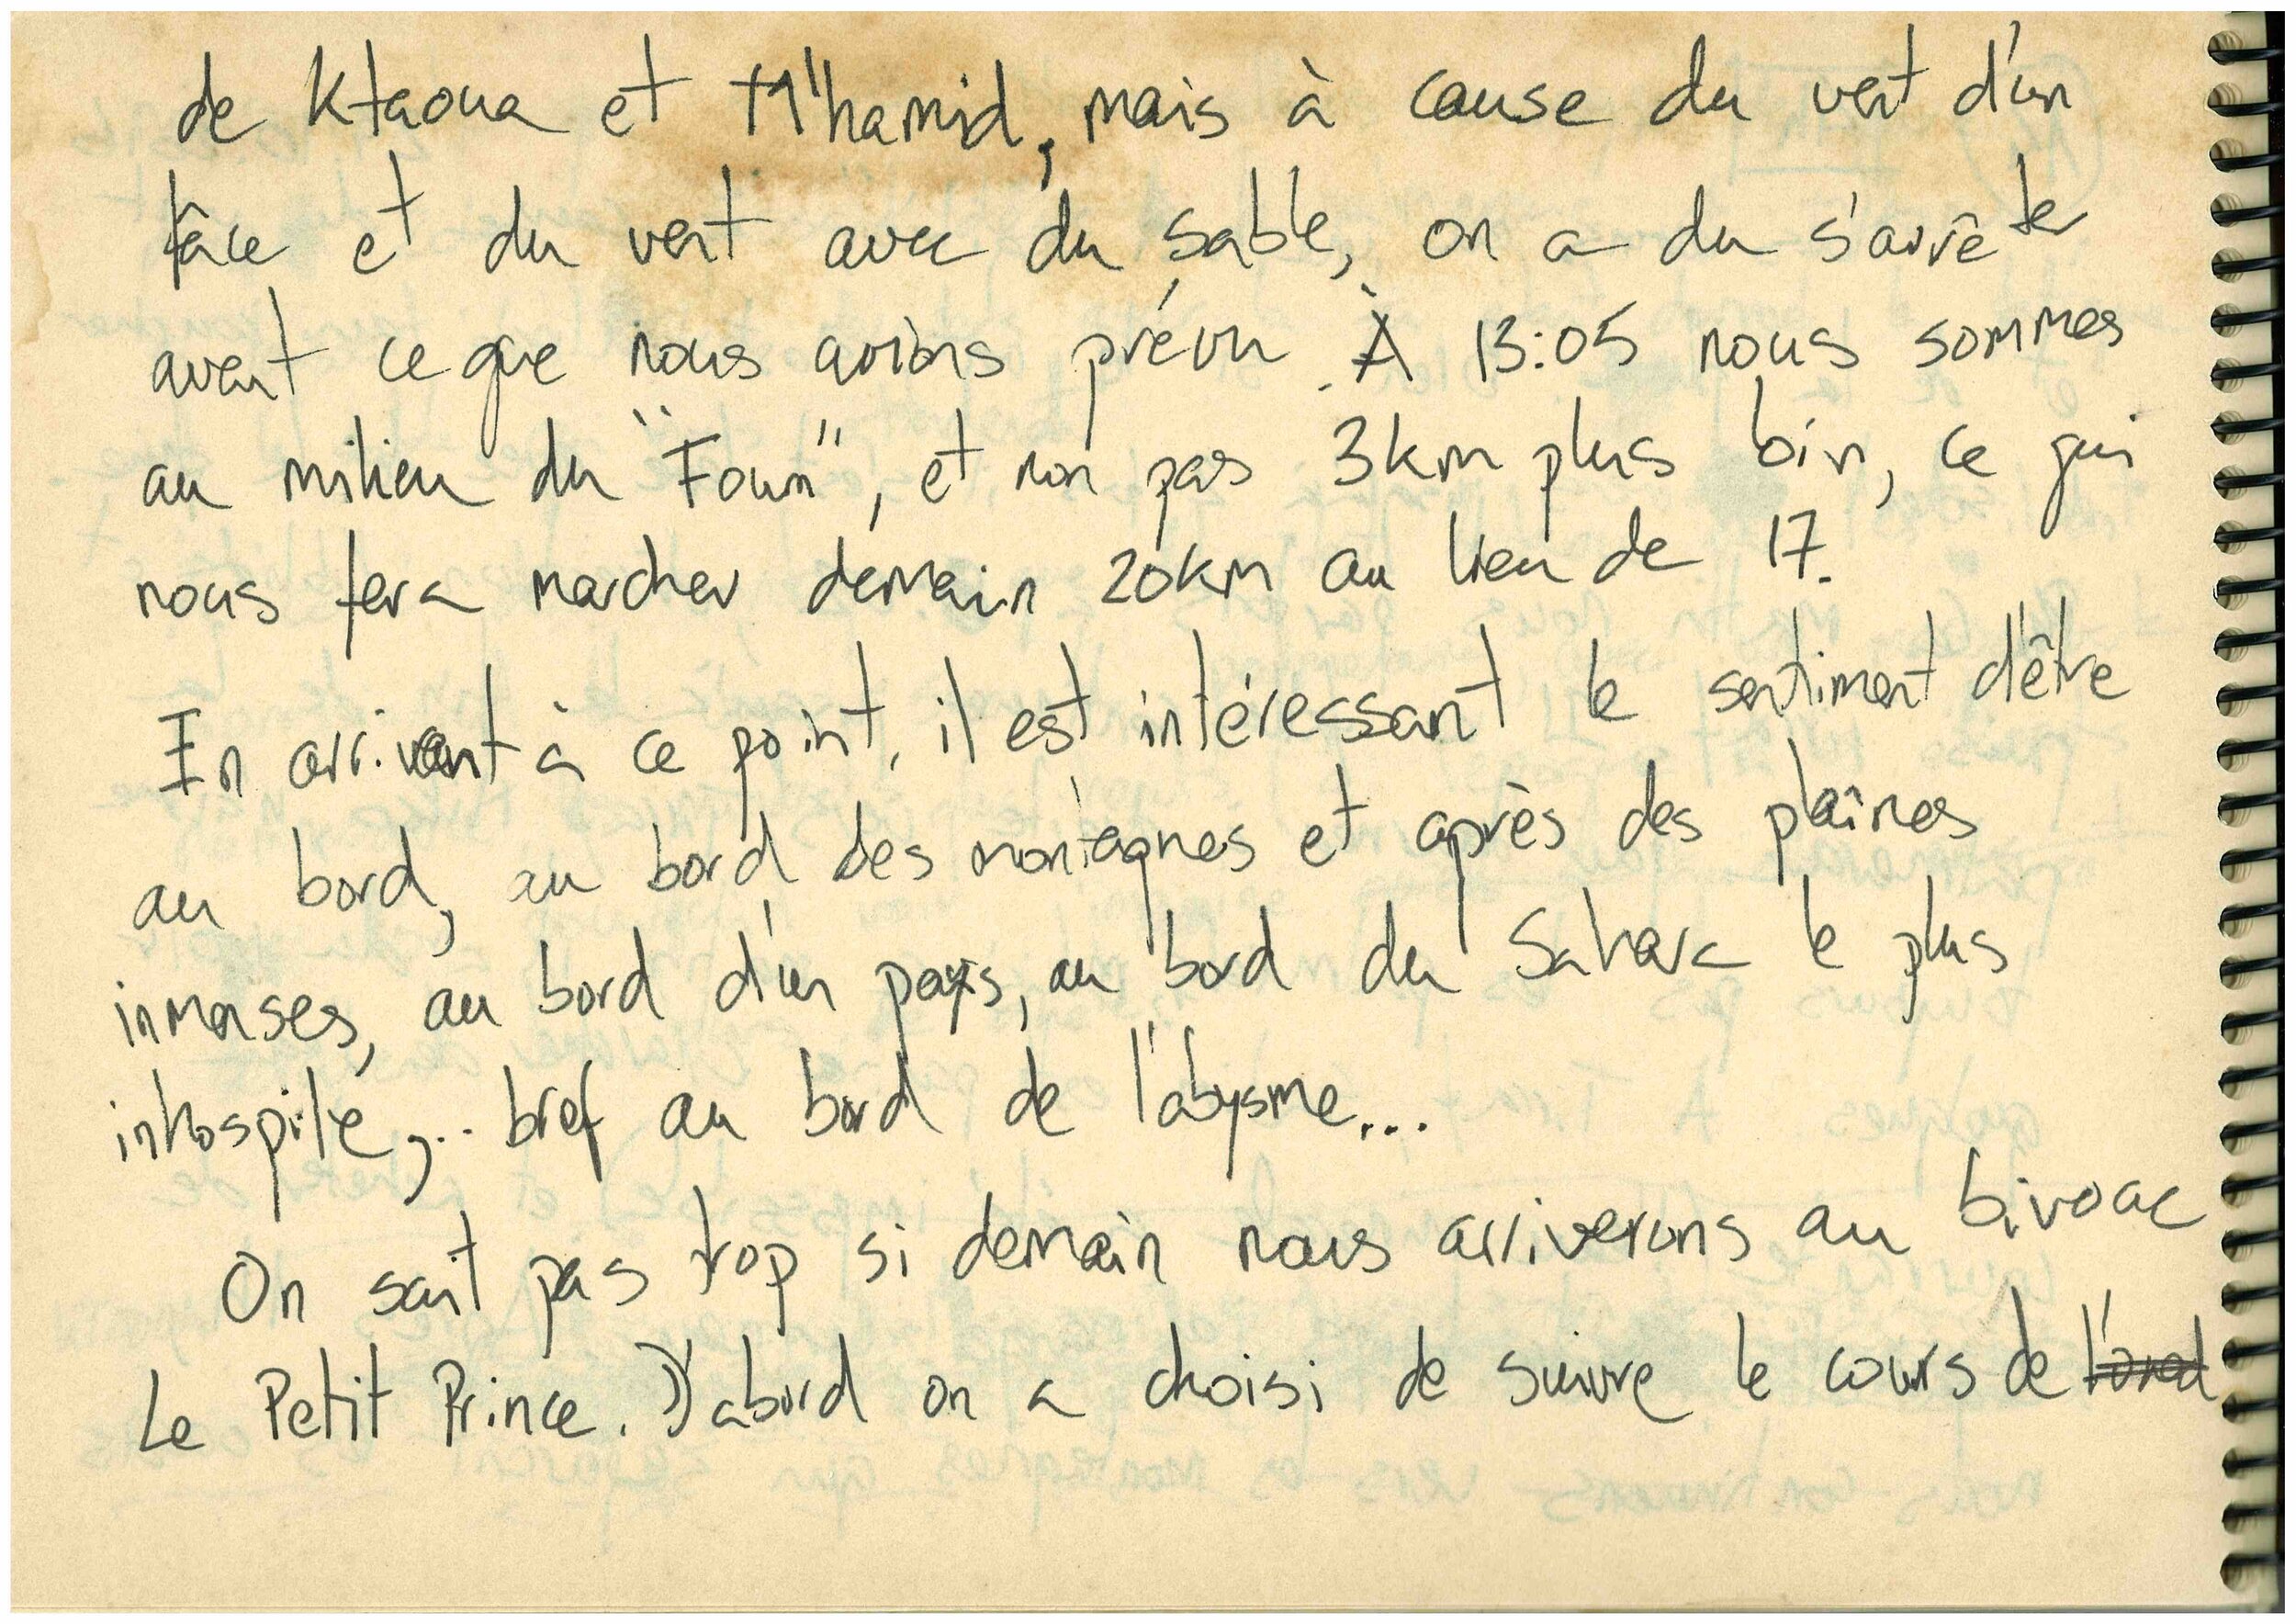 de Ktaoua et M'hamid, mais à cause du vent d'en
fâce et du vent avec du sable, on a du s'arrêter
avant ce que nous avions prévu. À 13:05 nous sommes
au milieu du "Foum", et non pas 3km plus loin, ce qui
nous fera marcher demain 20km au lieu de 17.
En arrivant à ce point, il est intéressant le sentiment d'être
au bord, au bord des montagnes et après des plaînes
inmenses, au bord d'un pays, au bord du Sahara le plus
inhospité,... bref au bord de l'abysme...
On sait pas trop si demain nous arriverons au bivoac
Le Petit Prince. D'abord on a choisi de suivre le cours de